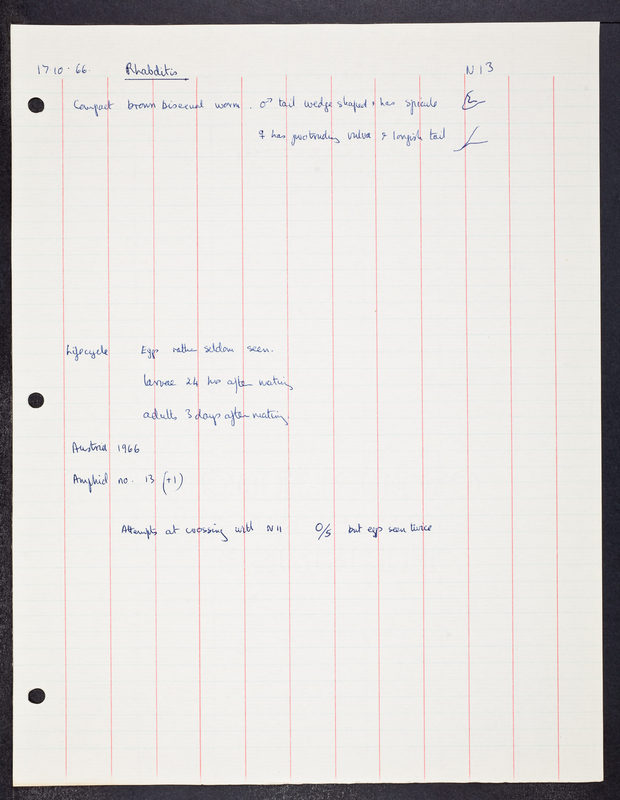 17 10 · 66. Rhabditis N13
Compact brown bisexual worm. ♂ tail wedge shaped & has spicule
♀ has protruding vulva & longish tail
Lifecycle Eggs rather seldom seen.
larvae 24 hrs after mating
adults 3 days after mating.
Austria 1966
Amphid no. 13 (+1)
Attempts at crossing with N11 0/5 but eggs seen twice